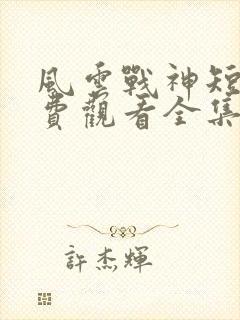 風雲戰神短
費觀看全集
許杰輝